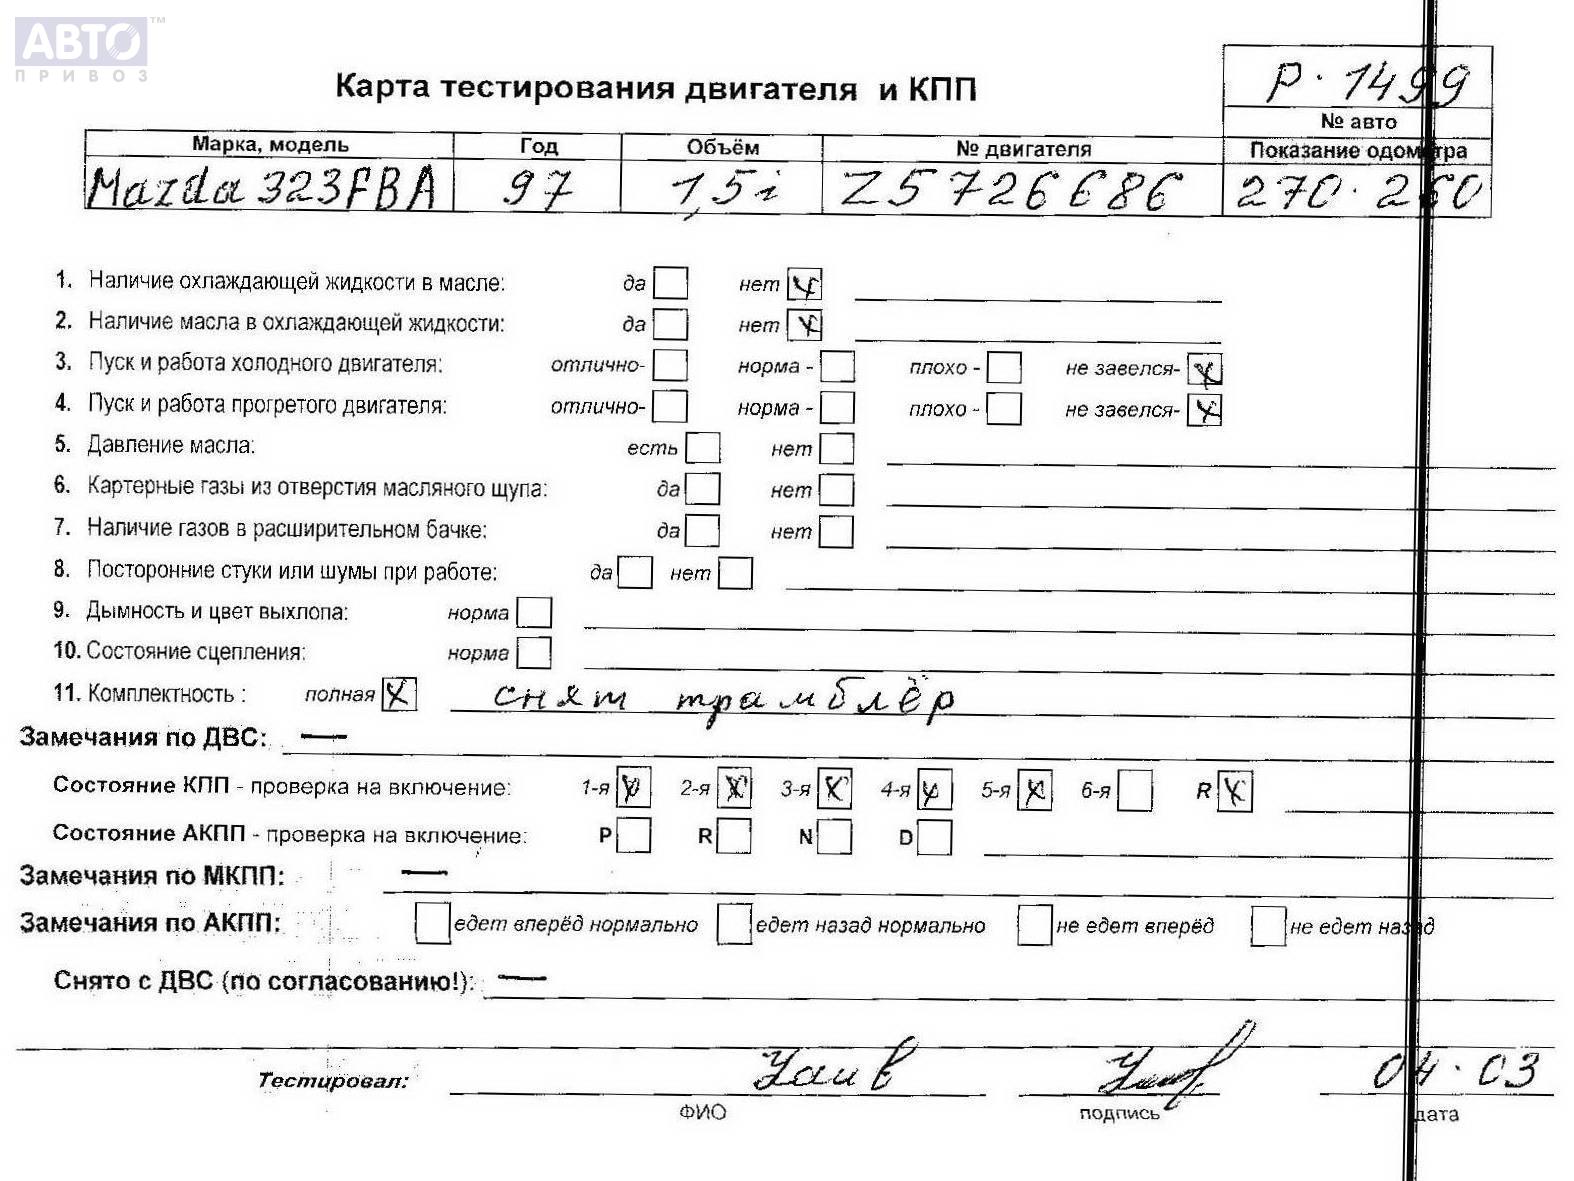 АВТО™
ПРИВОЗ
Карта тестирования двигателя и КПП
Р. 1499
№ авто
Марка, модель Год Объём № двигателя Показание одометра
Mazda 323FBA 97 1,5i Z5726686 270.260
1. Наличие охлаждающей жидкости в масле: да нет
2. Наличие масла в охлаждающей жидкости: да нет
3. Пуск и работа холодного двигателя: отлично- норма - плохо - не завелся-
4. Пуск и работа прогретого двигателя: отлично- норма - плохо - не завелся-
5. Давление масла: есть нет
6. Картерные газы из отверстия масляного щупа: да нет
7. Наличие газов в расширительном бачке: да нет
8. Посторонние стуки или шумы при работе: да нет
9. Дымность и цвет выхлопа: норма
10. Состояние сцепления: норма
11. Комплектность : полная снят трамблёр
Замечания по ДВС: —
Состояние КПП - проверка на включение: 1-я 2-я 3-я 4-я 5-я 6-я R
Состояние АКПП - проверка на включение: P R N D
Замечания по МКПП: —
Замечания по АКПП: едет вперёд нормально едет назад нормально не едет вперёд не едет назад
Снято с ДВС (по согласованию!): —
Тестировал: 04.03
ФИО подпись дата